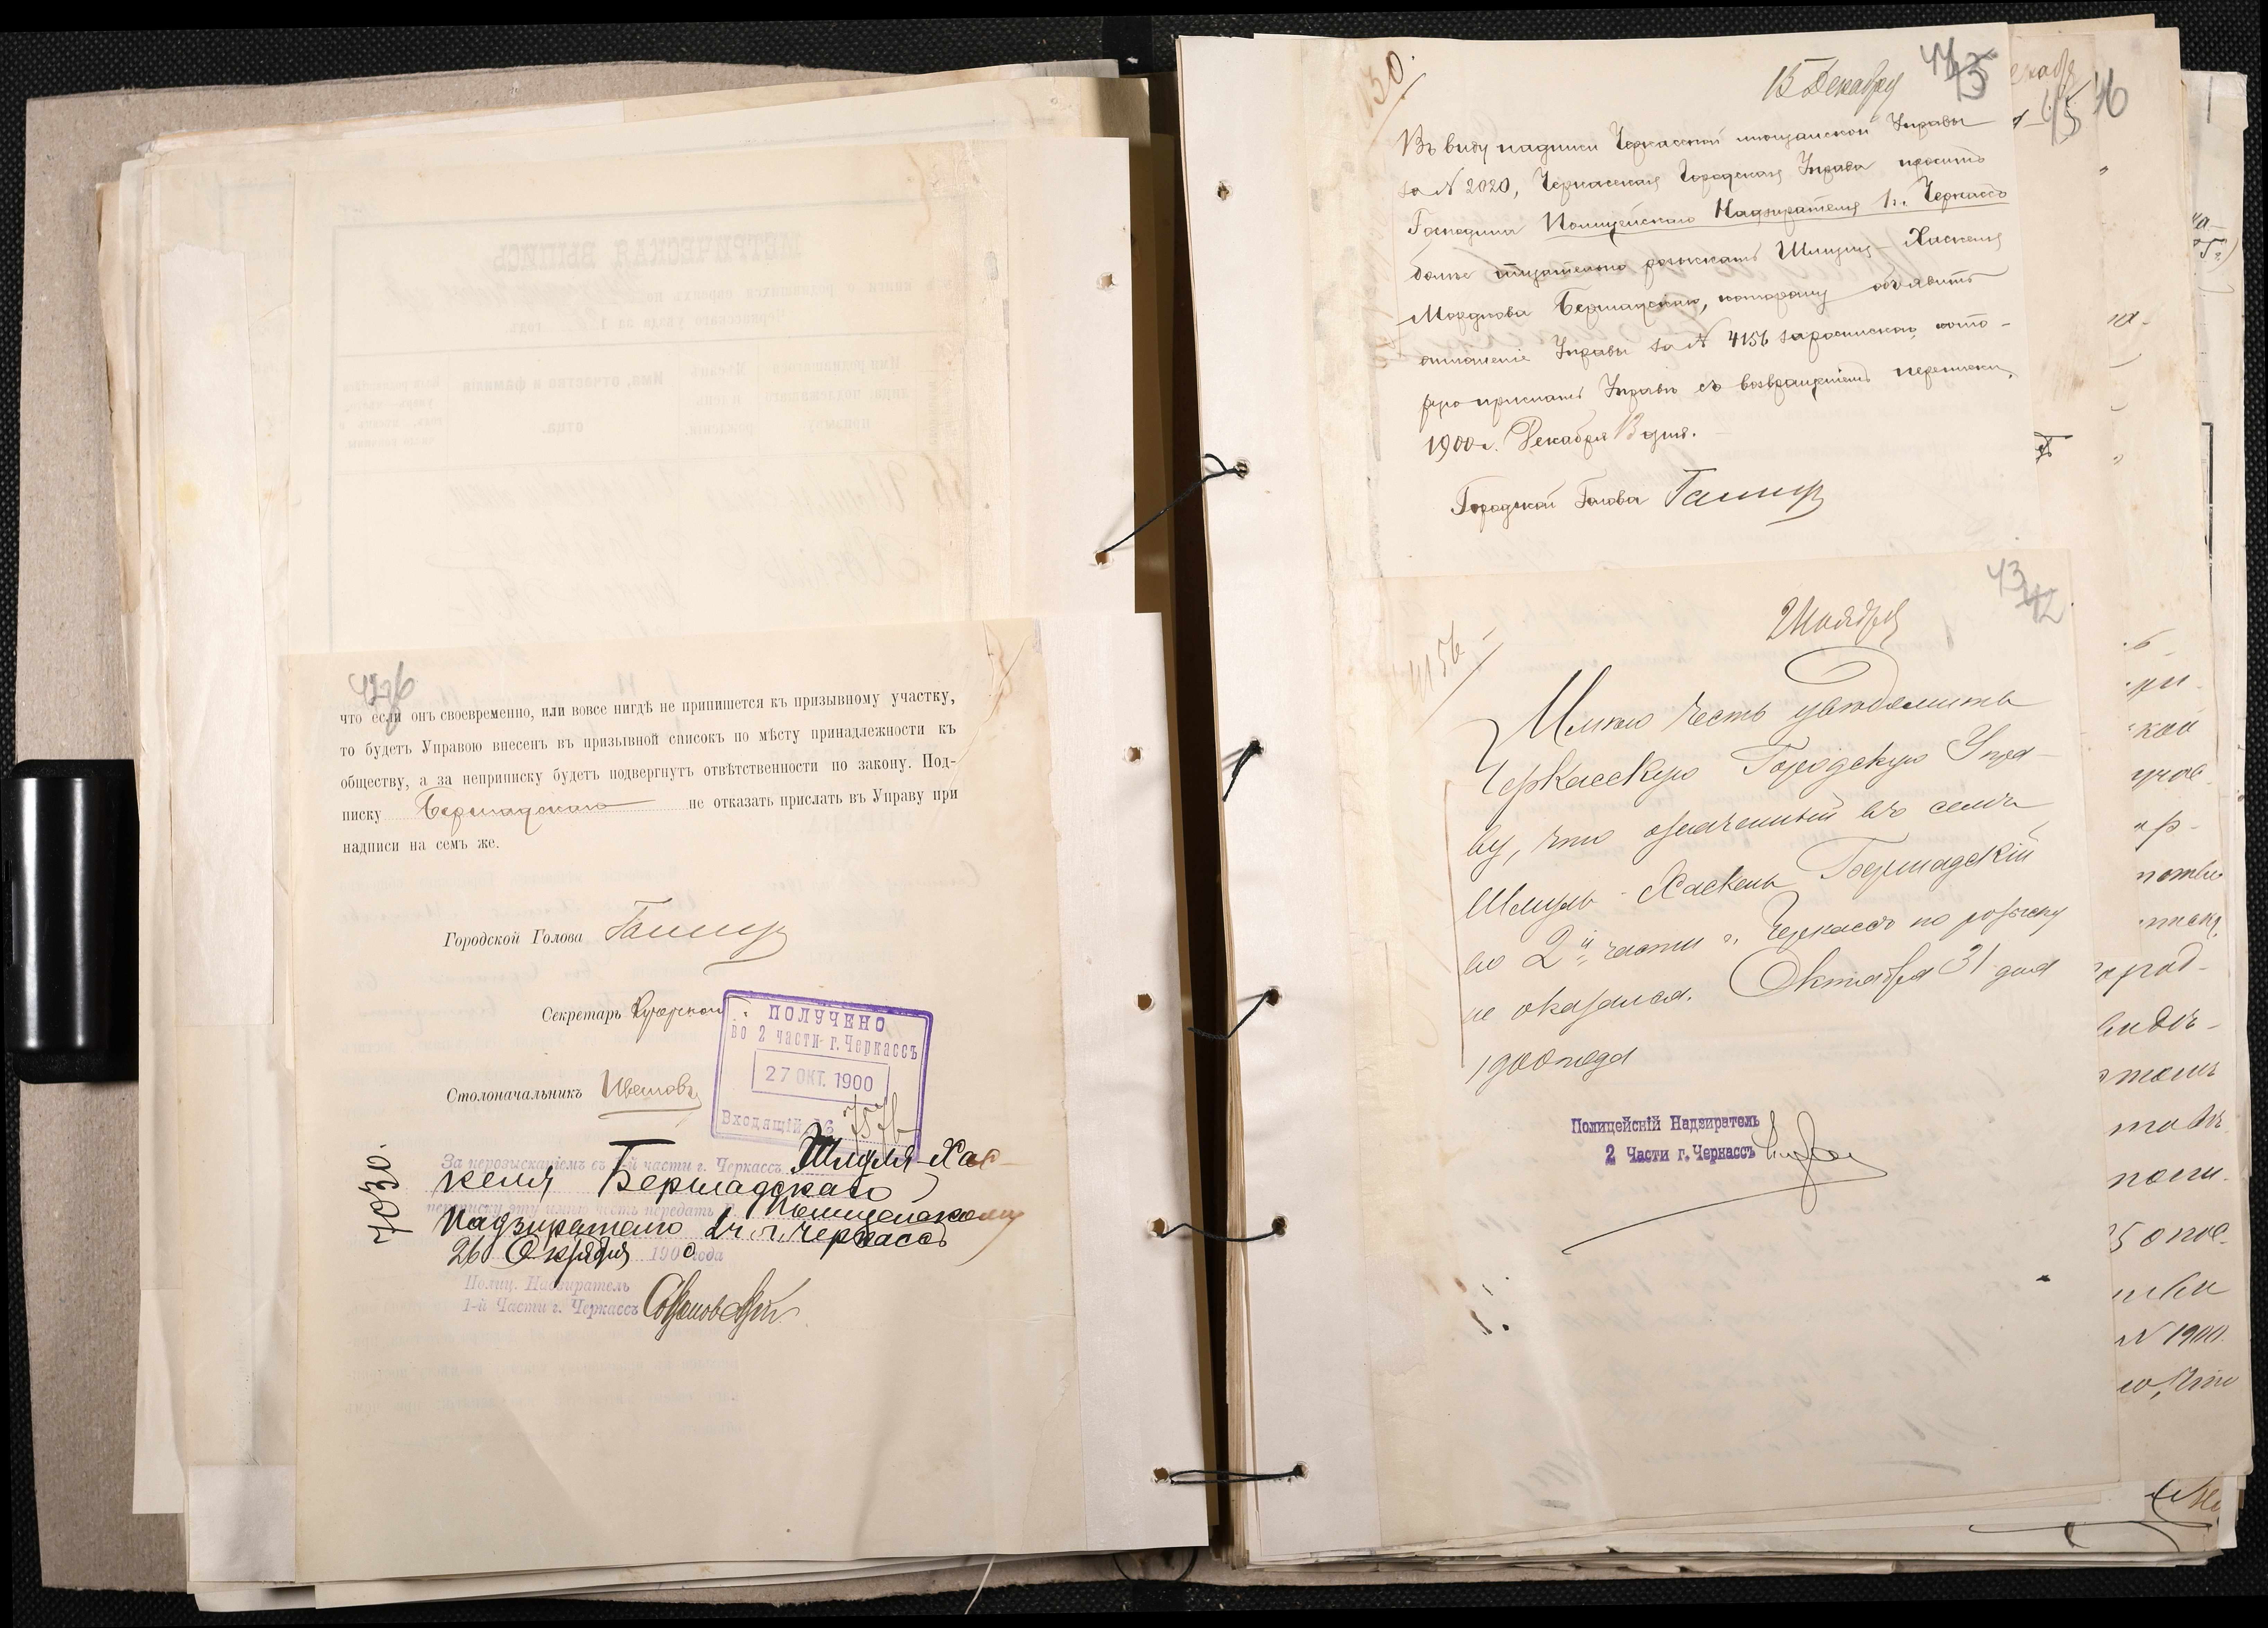 что если онъ своевременно, или вовсе нигдѣ не припишется къ призывному участку,
то будетъ Управою внесенъ въ призывной списокъ по мѣсту принадлежности къ
обществу, а за неприписку будетъ подвергнутъ отвѣтственности по закону. Под-
писку Бершадскаго не отказать прислать въ Управу при
надписи на семъ же.
Городской Голова
Секретарь
Столоначальникъ Ивановъ
ПОЛУЧЕНО
во 2 части г. Черкассъ
27 ОКТ. 1900
Входящій № 7576
7030.
За нерозысканіемъ въ 1-й части г. Черкассъ Шмуля-Хас-
келя Бершадскаго
переписку эту имѣю честь передать Полицейскому
Надзирателю 2 ч. г. Черкассъ
26 Октября 1900 года
Полиц. Надзиратель
1-й Части г. Черкассъ
130.
15 Декабря
44
43
Въ виду надписи Черкасской мѣщанской Управы
за № 2020, Черкасская Городская Управа проситъ
Господина Полицейскаго Надзирателя 1 ч. Черкассъ
болѣе тщательно розыскать Шмуля-Хаскеля
Мордкова Бершадскаго, которому объявить
отношеніе Управы за № 4156 за роспискою, кото-
рую прислать Управѣ съ возвращеніемъ переписки.
1900 г. Декабря 13 дня.
Городской Голова
43
42
2 Ноября
4156
Имѣю честь увѣдомить
Черкасскую Городскую Упра-
ву, что означенный въ семъ
Шмуль-Хаскель Бершадскій
во 2й части г. Черкассъ по розыску
не оказался. Октября 31 дня
1900 года
Полицейскій Надзиратель
2 Части г. Черкассъ
45
46
№ 1900